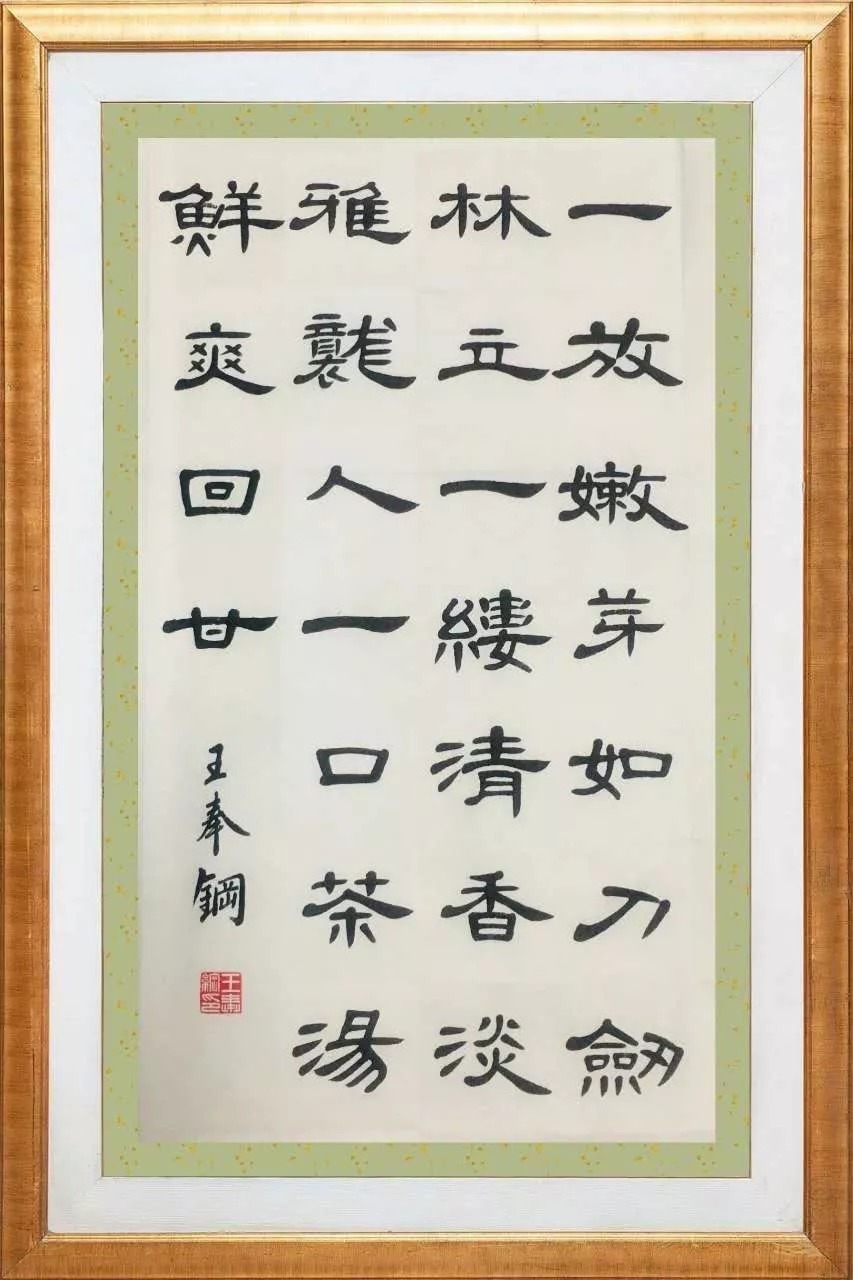 一放嫩芽如刀劔
林立一縷清香淡
雅襲人一口茶湯
鮮爽回甘
王奉鋼
王奉鋼印